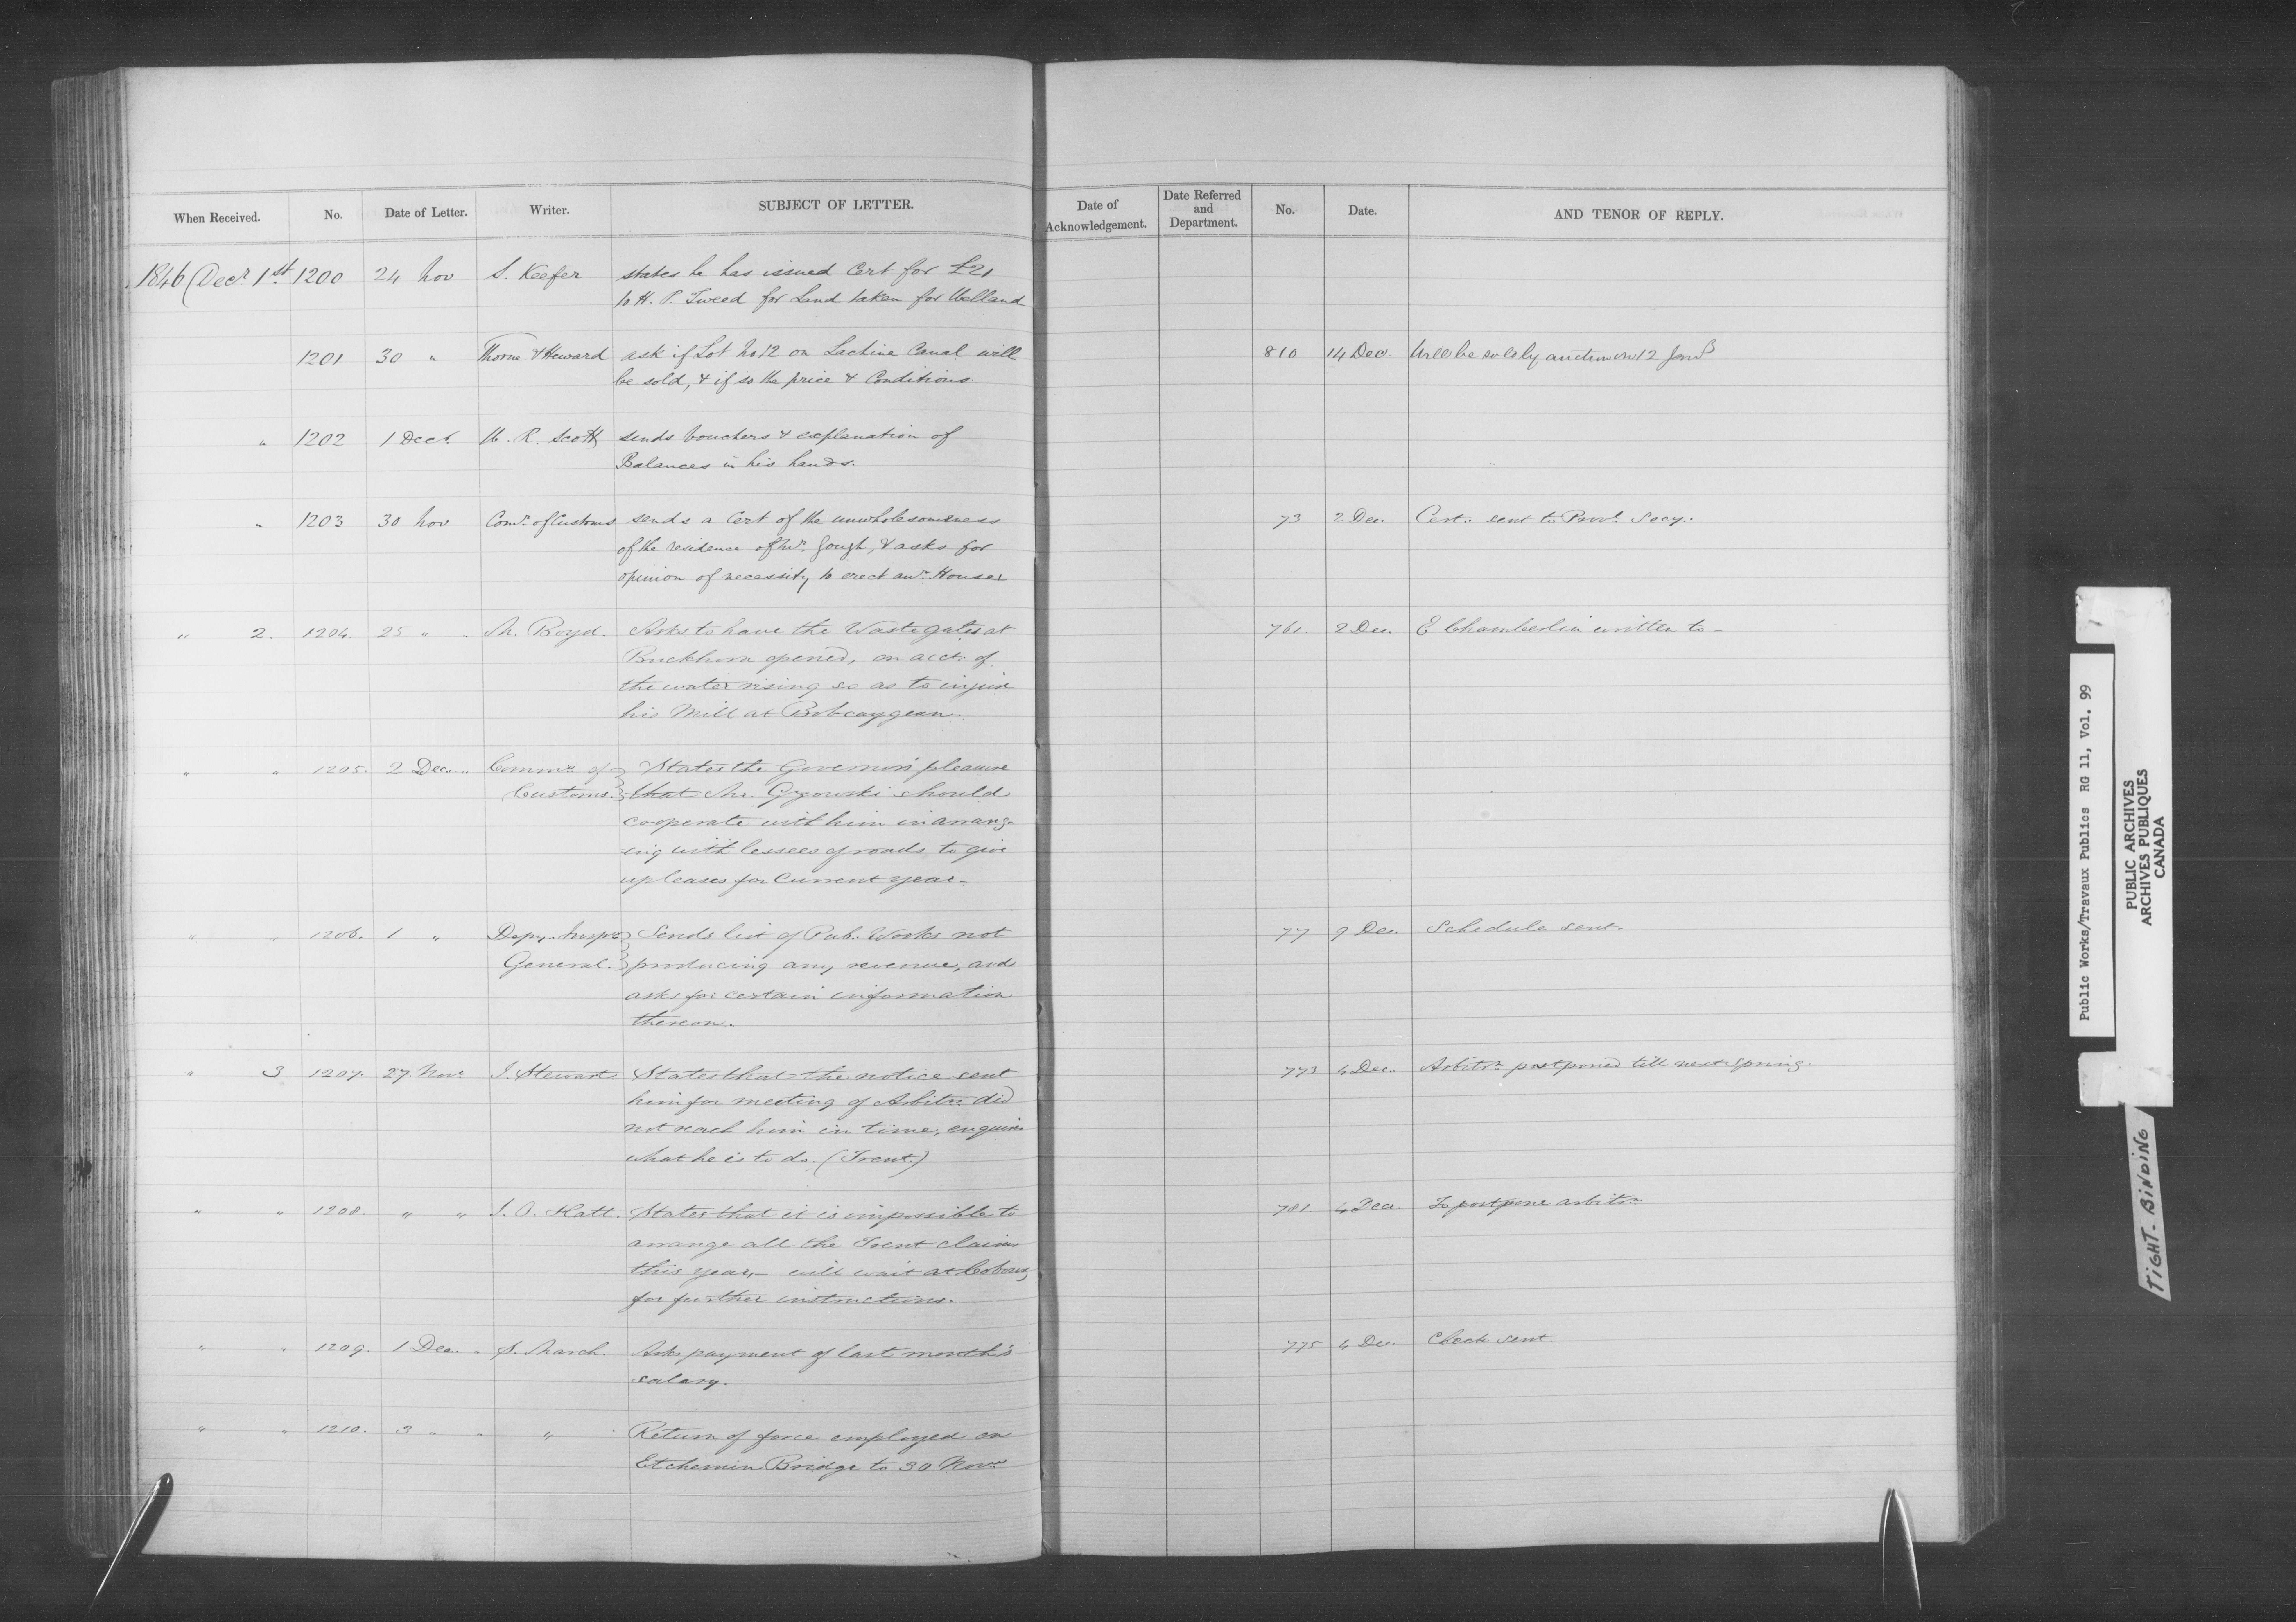 When Received. No. Date of Letter. Writer. SUBJECT OF LETTER. Date of Acknowledgement. Date Referred and Department. No. Date. AND TENOR OF REPLY.
1846 (Decr. 1st. 1200 24 Nov S. Keefer states he has issued Cert for £21
to H. P. Tweed for Land taken for Welland
1201 30 " Thorne & Heward ask if Lot No 12 on Lachine Canal will 810 14 Dec. Will be sold by auction on 12 Jany
be sold, & if so the price & Conditions
" 1202 1 Decr. W. R. Scott sends Vouchers & explanation of
Balances in his hands.
" 1203 30 Nov Comr. of Customs sends a Cert of the unwholesomeness 73 2 Dec. Cert. sent to Provl. Secy.
of the residence of Mr. Gough, & asks for
opinion of necessity to erect anr. House
" 2. 1204. 25 " " M. Boyd. Asks to have the Wastegates at 761 2 Dec. E Chamberlin written to -
Buckhorn opened, on acct. of
the water rising so as to injure
his Mill at Bobcaygean.
" " 1205. 2 Dec. " Commr. of States the Governor's pleasure
Customs. that Mr. Gzowski should
cooperate with him in arrang-
ing with lessees of roads to give
up leases for Current year -
" " 1206. 1 " Depy. Inspr. Sends list of Pub. Works not 77 9 Dec. Schedule sent.
General. producing any revenue, and
asks for certain information
thereon.
" 3 1207. 27. Novr. J. Stewart. States that the notice sent 773 4 Dec. Arbitrn. postponed till next Spring.
him for meeting of Arbitrs. did
not reach him in time, enquires
what he is to do. (Trent.)
" " 1208. " " J. O. Hatt. States that it is impossible to 781. 4 Dec. To postpone arbitrn.
arrange all the Trent claims
this year, - will wait at Cobourg
for further instructions.
" " 1209. 1 Dec. " S. March. Asks payment of last month's 775 4 Dec. Check sent.
salary.
" " 1210. 3 " " " Return of force employed on
Etchemin Bridge to 30 Novr.
Public Works/Travaux Publics RG 11, Vol. 99
PUBLIC ARCHIVES
ARCHIVES PUBLIQUES
CANADA
TIGHT BINDING